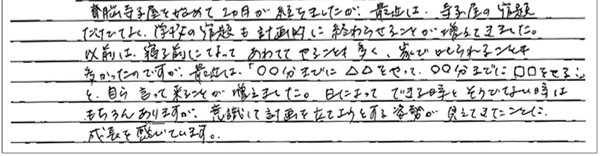 育脳寺子屋を始めて2ヶ月が経ちましたが、最近は、寺子屋の宿題
だけでなく、学校の宿題も計画的に終わらせることが増えてきました。
以前は、寝る前になってあわててやることも多く、親に叱られることも
多かったのですが、最近は、「〇〇分までに△△をやって、〇〇分までに□□をやる」
と、自ら言って来ることが増えました。日によってできる時とそうでない時は
もちろんありますが、意識して計画を立てようとする姿勢が見えてきたことに、
成長を感じています。